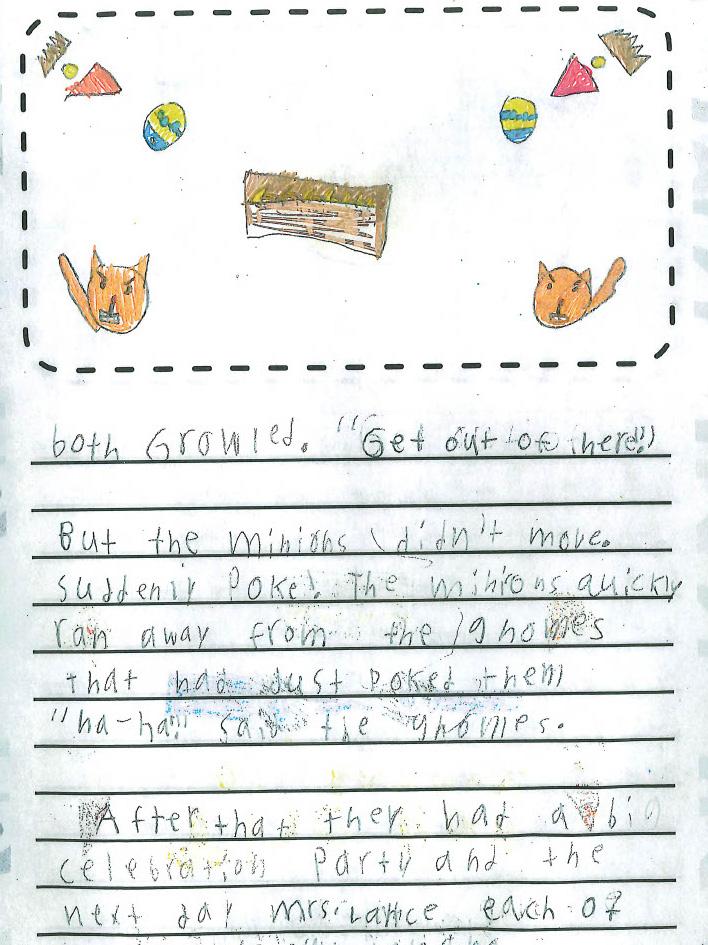 both Growled. "Get out of here!!)
But the minions didn't move.
Suddenly Poke! The minions quickly
ran away from the gnomes
that had Just Poked them
"ha-ha!!" said the gnomes.
After that they had a big
celebration Party and the
next day mrs. Lattice each of